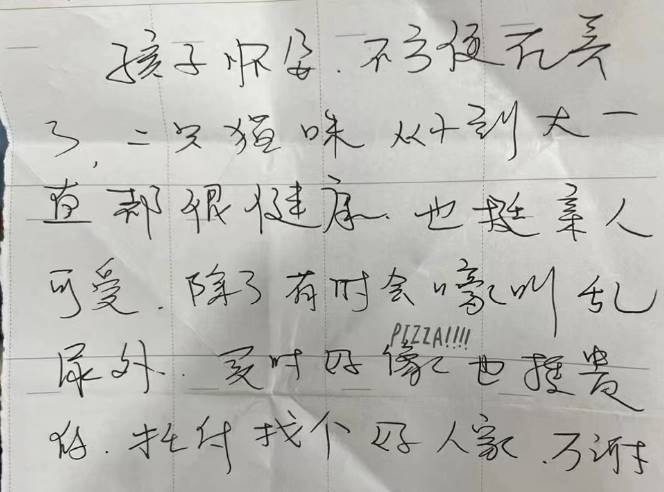 孩子怀孕.不方便在养
了,二只猫咪从小到大一
直都很健康.也挺亲人
可爱.除了有时会嚎叫乱
PIZZA!!!!
尿外.买时好像也挺贵
的.托付找个好人家.万谢